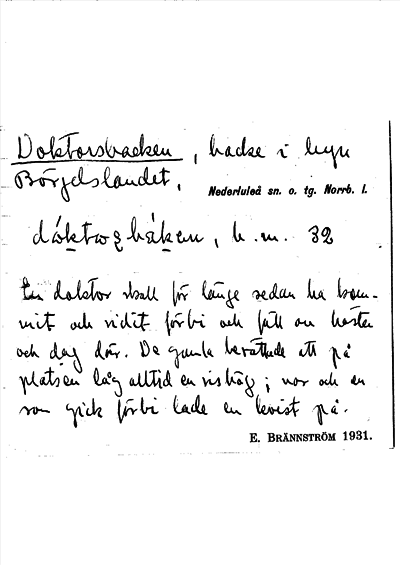 Doktorsbacken, backe i byn
Börjelslandet,
Nederluleå sn. o. tg. Norrb. l.
h. m. 32
En doktor skall för länge sedan ha kom-
mit och ridit förbi och fått av hästen
och dog där. De gamla berättade att på
platsen låg alltid en rishög; var och en
som gick förbi lade en kvist på.
E. BRÄNNSTRÖM 1931.